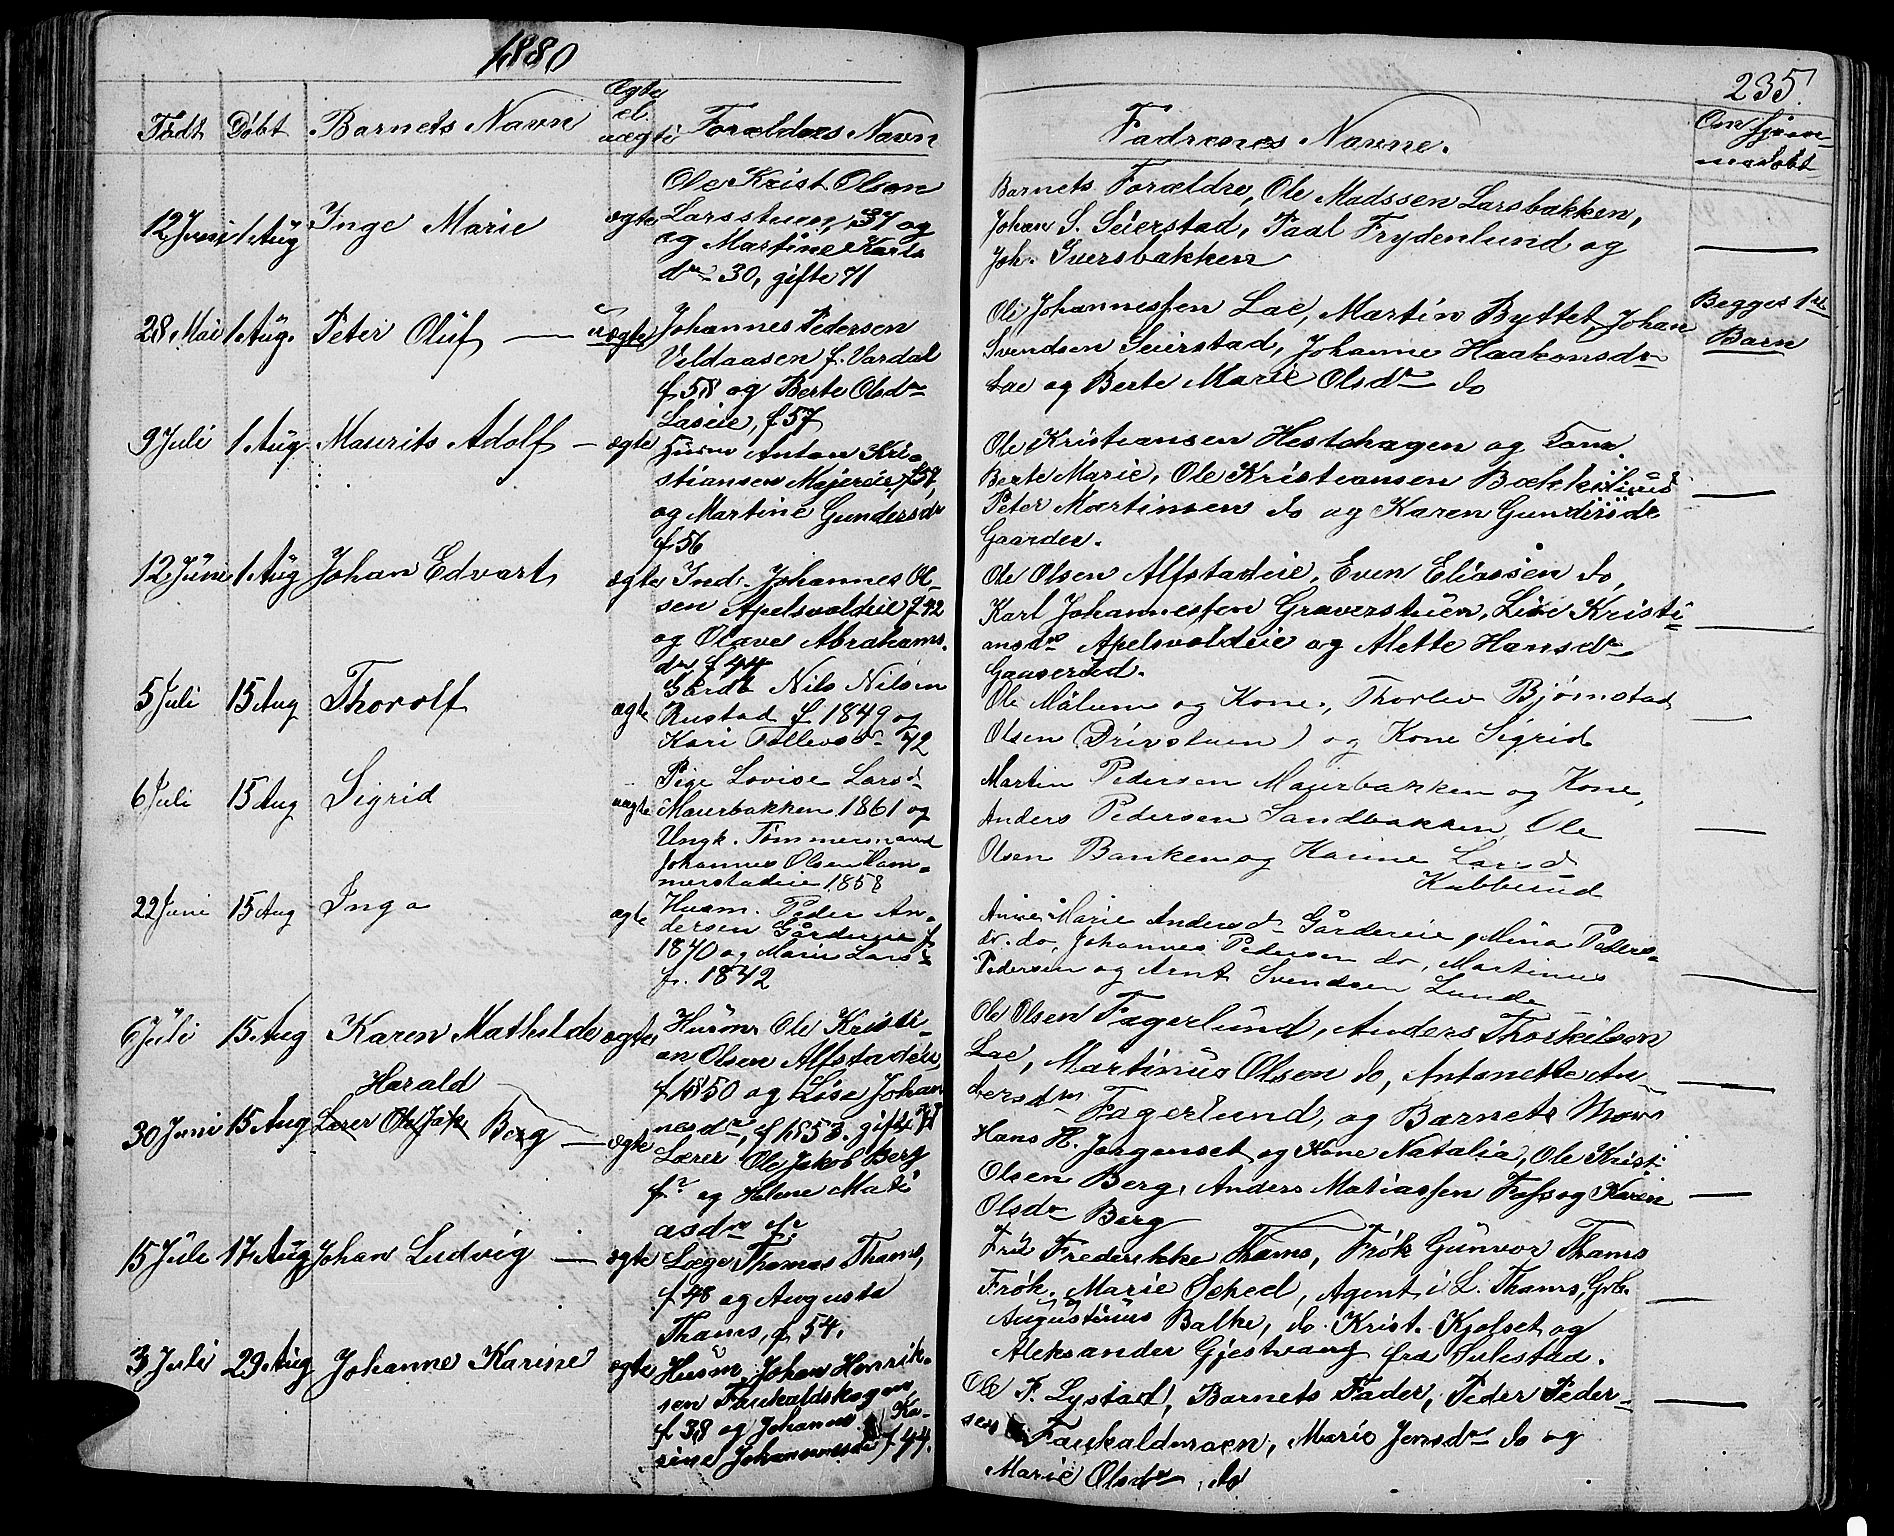 1880
235.
Födt Döbt Barnets Navn Ægte el. uægte Forældres Navn
Fadrenes Navne.
Om hjemmedöbt
12 Juni 1 Aug Inge Marie ægte
Ole Krist. Olsen
Larsstuen, 37 og
og Martine Karls
dr 30, gifte 71
Barnets Forældre, Ole Madssen Larsbakken,
Johan S. Seierstad, Paal Frydenlund og
Joh. Iversbakken
28 Mai 1 Aug. Peter Oluf — uægte
Johannes Pedersen
Veldaasen f. Vardal
f 58 og Berte Olsdr
Laeeie, f 57
Ole Johannessen Lae, Martin Byttet, Johan
Svendsen Seierstad, Johanne Haakonsdr
Lae og Berte Marie Olsdr do
Begges 1ste
Barn
9 Juli 1 Aug Maurits Adolf — ægte
Husm Anton Kri-
stiansen Majereie, f 57,
og Martine Gundersdr
f 56
Ole Kristiansen Hestehagen og Kone
Berte Marie, Ole Kristiansen
Peter Martinsen do og Karen Gundersdr
Gaarder.
12 Juni 1 Aug Johan Edvart ægte
Ind. Johannes Ol-
sen Apelsvoldeie f 42
og Olave Abrahams.
dr f 44
Ole Olsen Alfstadeie, Even Eliassen do,
Karl Johannessen Graverstuen, Live Kristi-
ansdr Apelsvoldeie og Alette Hansdr
Gaaserud.
5 Juli 15 Aug Thorolf ægte
Gårdb Nils Nilsen
Rustad f 1849 og
Kari Tollevsdr 42
Ole Mälum og Kone, Thorlev Bjørnstad
Olsen (Drivstuen) og Kone Sigrid
6 Juli 15 Aug Sigrid uægte
Pige Lovise Larsd
Maurbakken 1861 og
Ungk. Tømmermand
Johannes Olsen Ham-
merstadeie 1858
Martin Pedersen Maurbakken og Kone,
Anders Pedersen Sandbakken, Ole
Olsen Banken og Karine Larsd
Kubberud
22 Juni 15 Aug Inga ægte
Husm. Peder An-
dersen Gårdereie f
1840 og Marie Larsd
f. 1842
Anne Marie Andersd Gårdereie, Mina Peders-
dr. do, Johannes Pedersen do, Martinus
Pedersen og Arnt Svendsen Lunde
6 Juli 15 Aug Karen Mathilde ægte
Husm Ole Kristi-
an Olsen Alfstadeie,
f 1850 og Lise Johan
nesdr, f 1853. gifte 78
Ole Olsen Fagerlund, Anders Thoskilsen
Lae, Martinus Olsen do, Antonette An-
dersdtr Fagerlund, og Barnets Mor
Harald
30 Juni 15 Aug Lærer Ole Jak Berg — ægte
Lærer Ole Jakob Berg
f? og Helene Mati
asdr f?
Hans H. Jörgenset og Kone Natalia, Ole Krist.
Olsen Berg, Anders Matiassen Foss og Karen
Olsdr Berg
15 Juli 17 Aug Johan Ludvig — ægte
Læge Thomas Thams,
f 48 og Augusta
Thams, f 54.
Fru Frederikke Thams, Frök Gunvor Thams
Frök. Marie Scheel, Agent i L. Thams, Grb.
Augustinus Balke, do Krist. Kjölset og
Aleksander Gjestvang fra Sulestad.
3 Juli 29 Aug Johanne Karine ægte
Husm Johan Henrik-
sen Faukaldskagen
f 38 og Johanne Ka-
rine Johannesdr f 44.
Ole P. Lystad, Barnets Fader, Peder Peder-
sen Faukaldmoen, Marie Jensdr do og
Marie Olsdr do